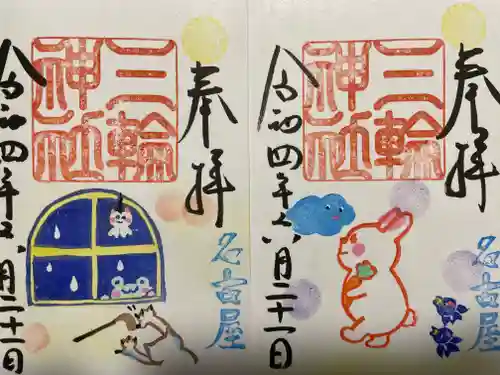 奉拝
名古屋
三輪
神社
令和四年六月二十一日
奉拝
名古屋
三輪
神社
令和四年五月二十一日